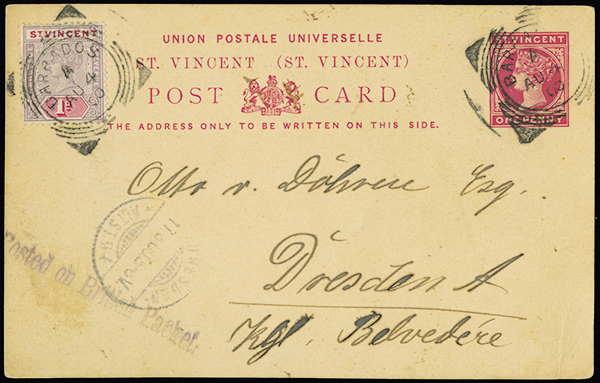 ST VINCENT
1D
BARBADOS
AU 4
00
UNION POSTALE UNIVERSELLE
ST. VINCENT (ST. VINCENT)
POST CARD
THE ADDRESS ONLY TO BE WRITTEN ON THIS SIDE.
ST VINCENT
ONE PENNY
BARBADOS
AU 4
00
Otto v. Döhren Esq.
Dresden A
Kgl. Belvedére
DRESDEN
ALTST.
Posted on British Packet.